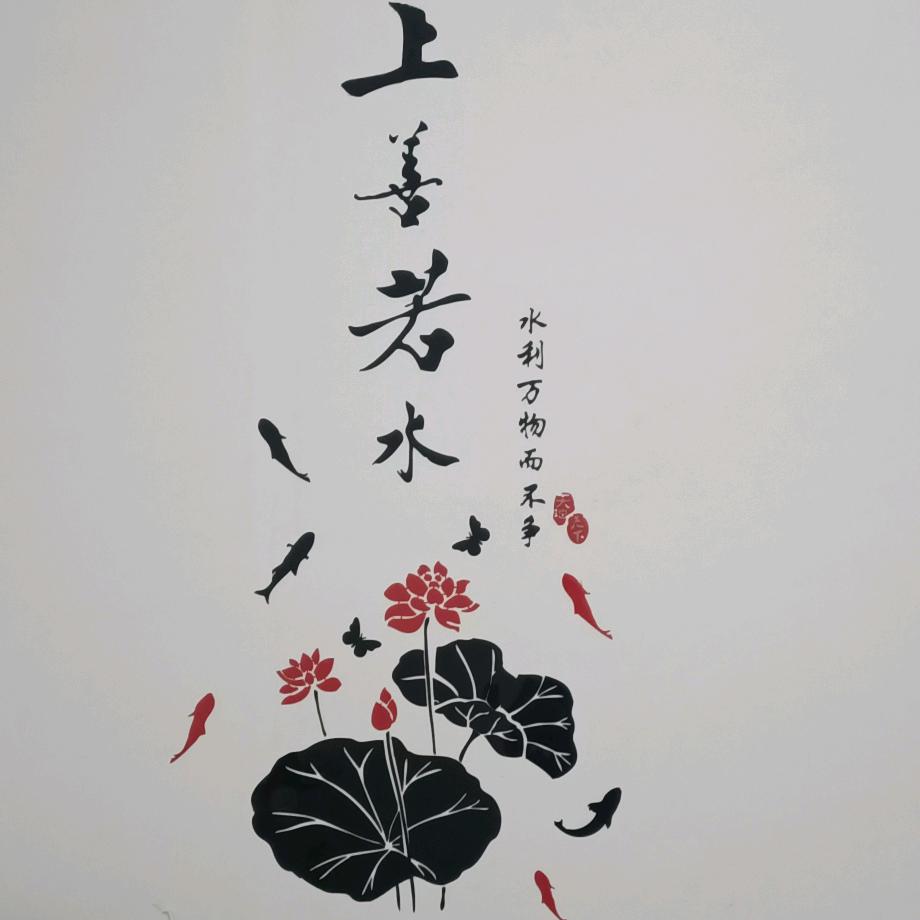 上善若水
水利万物而不争
天下